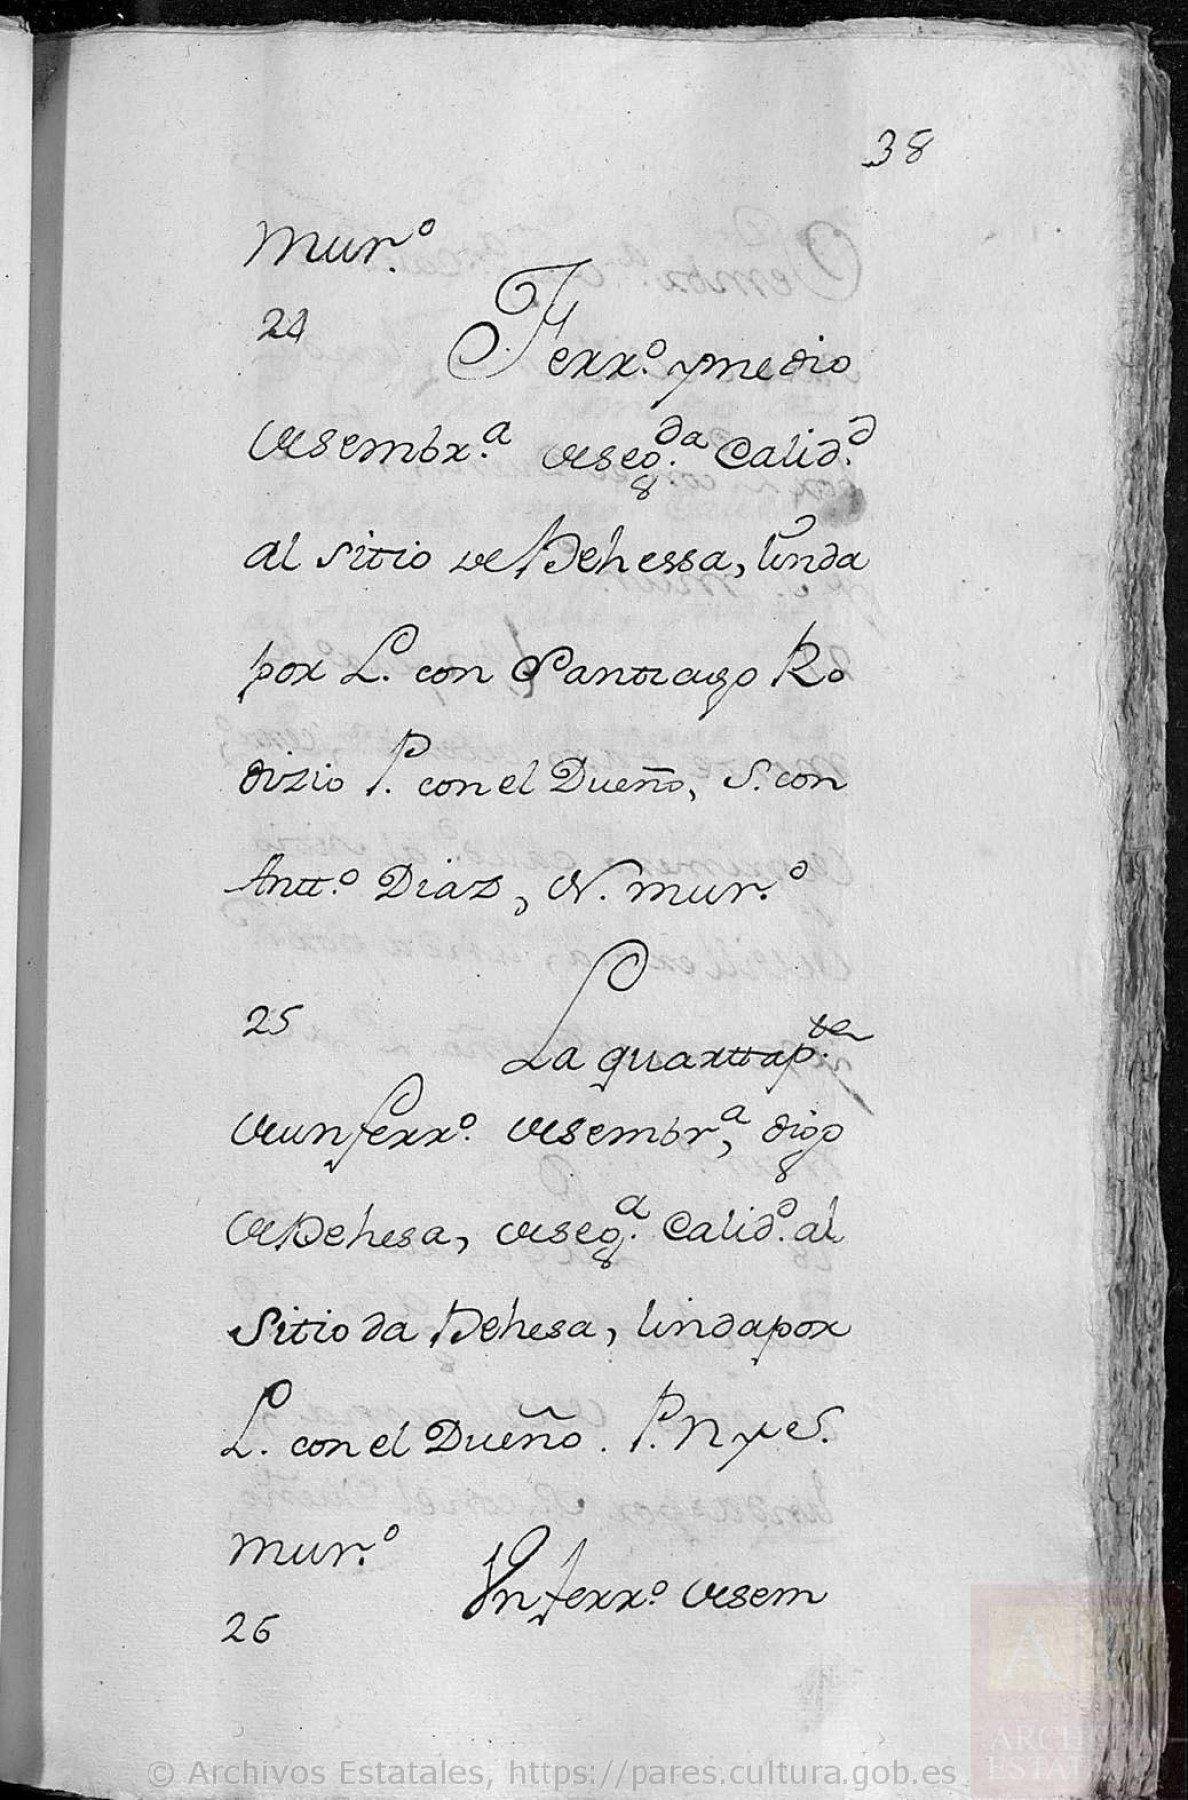 38
mur.º
24 Ferrº. ymedio
desembr.ª deseg.da Calid.d
al sitio de Dehessa, linda
por L. con Santiago Ro
dizio P. con el Dueño, S. con
Antt.º Diaz, N. mur.º
25 La quarttap.te
deunferrº. desembr,ª digo
deDehesa, deseg.ª Calid.d al
Sitio da Dehesa, lindapor
L. con el Dueño. P. N y S.
mur.º
26 Un ferrº. desem
© Archivos Estatales, https://pares.cultura.gob.es